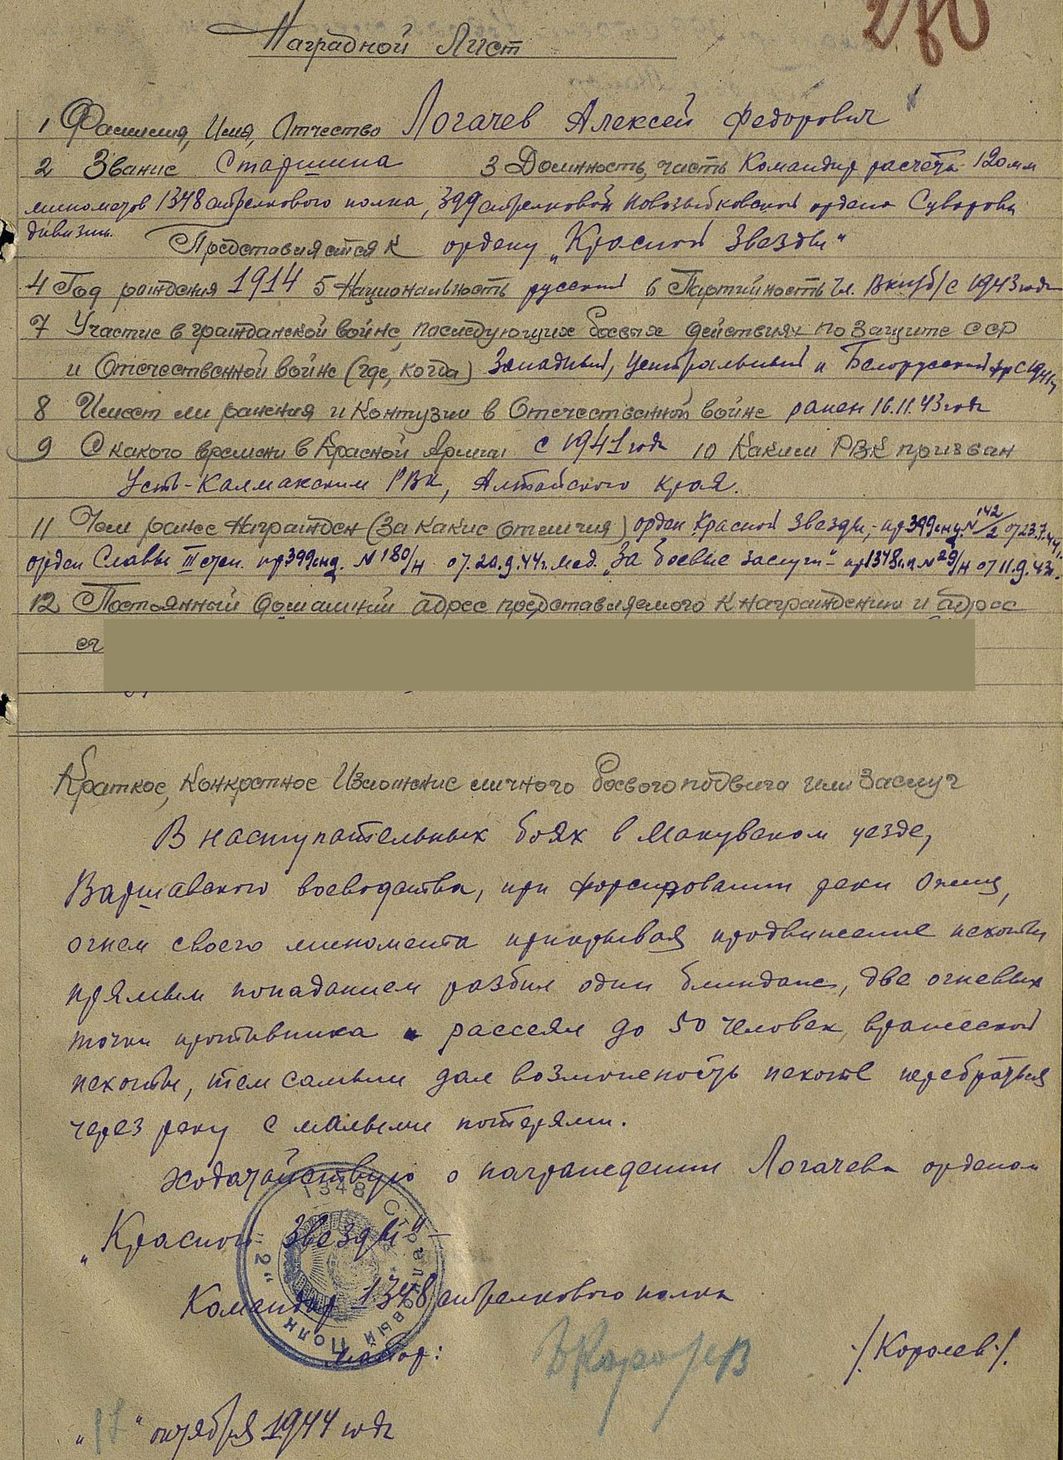 280
Наградной Лист
1 Фамилия, Имя, Отчество Логачев Алексей Федорович
2 Звание Старшина 3 Должность, часть Командир расчета 120мм
минометов 1348 стрелкового полка, 399 стрелковой Новозыбковской ордена Суворова
дивизии.
Представляется к ордену „Красной Звезды"
4 Год рождения 1914 5 Национальность русский 6 Партийность чл. ВКП(б) с 1943 года
7 Участие в гражданской войне, последующих боевых действиях по защите СССР
и Отечественной войне (где, когда) Западный, Центральный и Белорусский фр с 1941г
8 Имеет ли ранения и контузии в Отечественной войне ранен 16.11.43 года
9 С какого времени в Красной Армии с 1941 года 10 Каким РВК призван
Усть-Калманским РВК, Алтайского края.
11 Чем ранее награжден (за какие отличия) орден Красной Звезды,- пр 399 сд N 142/2 от 23.7.44г.
орден Славы III степ. пр 399 сд. N 180/н от 20.9.44г. Мед. „За боевые заслуги"- пр 1348 сп N 29/н от 11.9.43г.
12 Постоянный домашний адрес представляемого к награждению и адрес
его
Краткое, Конкретное Изложение личного боевого подвига или заслуг
В наступательных боях в Макувском уезде,
Варшавского воеводства, при форсировании реки Ожиц,
огнем своего миномета прикрывая продвижение пехоты
прямым попаданием разбил один блиндаж, две огневых
точки противника рассеял до 50 человек вражеской
пехоты, тем самым дал возможность пехоте перебраться
через реку с малыми потерями.
Ходатайствую о награждении Логачева орденом
„Красной Звезды"-
Командир 1348 стрелкового полка
Майор: Королев /Королев/.
„17" октября 1944 года
1348 Стрелковый Полк „2"